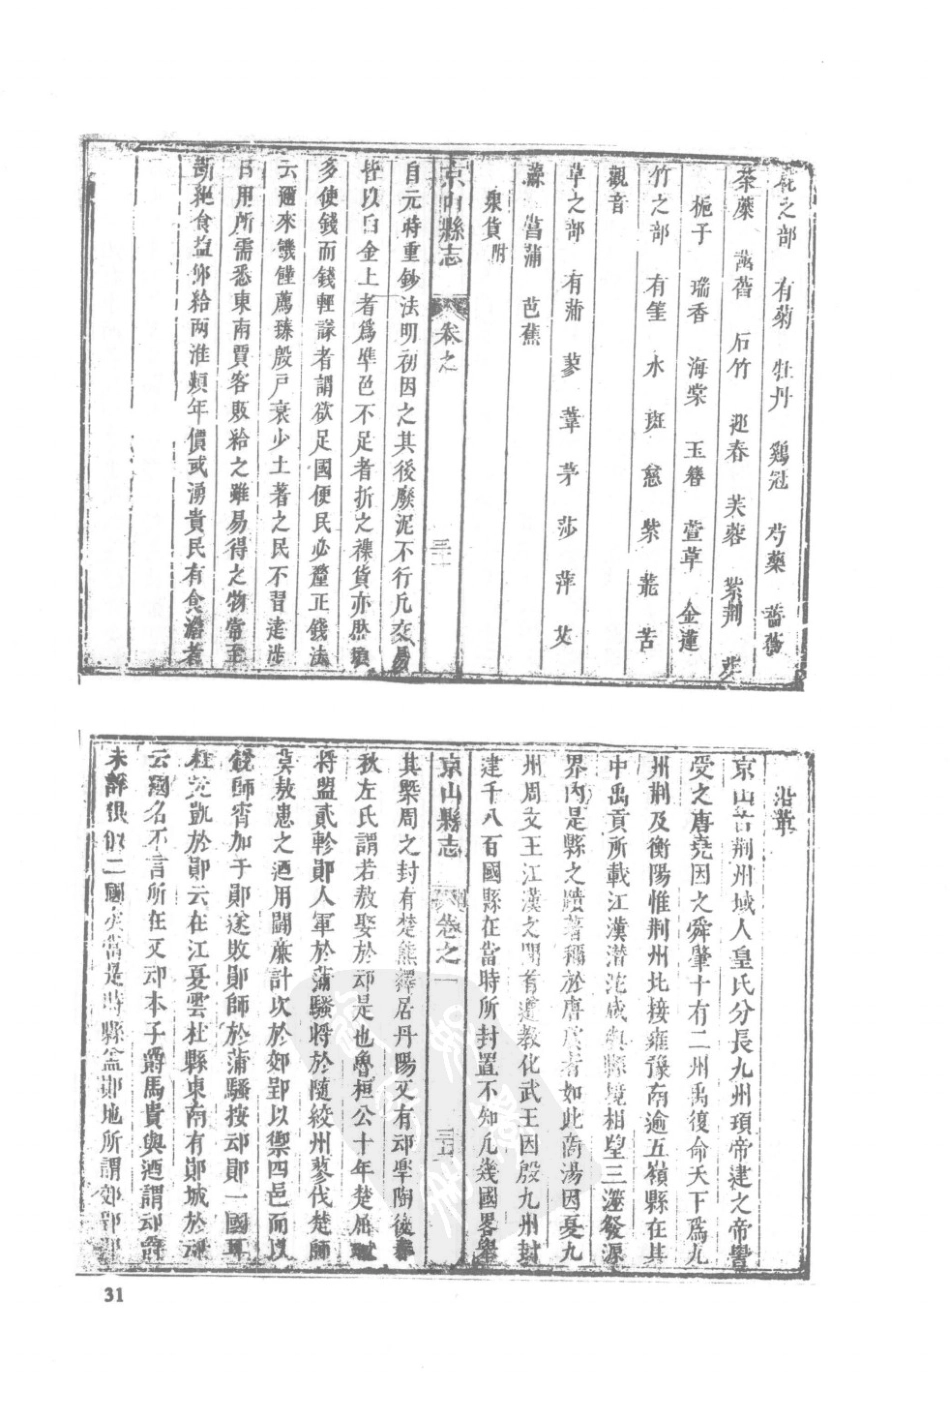 花之部 有菊 牡丹 鷄冠 芍藥 薔薇
荼蘼 萵蓿 石竹 迎春 芙蓉 紫荆
梔子 瑞香 海棠 玉簪 萱草 金蓮
竹之部 有筀 水 斑 慈 紫 苦
觀音
草之部 有蒲 蓼 葦 茅 莎 萍 艾
菖蒲 芭蕉
泉貨附
京山縣志 卷之一 三二
自元時重鈔法明初因之其後廢泥不行凡交易
皆以白金上者爲準色不足者折之襍貨亦然
多使錢而錢輕議者謂欲足國便民必釐正錢法
云邇來饑饉薦臻殷戸衰少土著之民不習遠涉
日用所需悉東南賈客販給之雖易得之物常至
斷絶食鹽仰給兩淮頻年價或湧貴民有食澹者
沿革
京山古荆州域人皇氏分長九州頊帝建之帝嚳
受之唐堯因之舜肇十有二州禹復命天下爲九
州荆及衡陽惟荆州北接雍豫南逾五嶺縣在其
中禹貢所載江漢潜沱咸與縣境相望三澨發源
界内是縣之蹟著稱於唐虞者如此商湯因夏九
州周文王江漢之間首遵教化武王因殷九州封
建千八百國縣在當時所封置不知凡幾國畧舉
京山縣志 卷之一 三五
其槩周之封有楚熊繹居丹陽又有䢵睾陶後春
秋左氏謂若敖娶於䢵是也魯桓公十年楚屈瑕
將盟貳軫鄖人軍於蒲騷將於隨絞州蓼伐楚師
莫敖患之廼用鬭廉計次於郊郢以禦四邑而以
銳師宵加于鄖遂敗鄖師於蒲騷按䢵鄖一國耳
杜元凱於鄖云在江夏雲杜縣東南有鄖城於䢵
云國名不言所在又䢵本子爵馬貴與廼謂䢵爵
未詳俱似二國矣當是時縣盆鄖地所謂郊郢
31